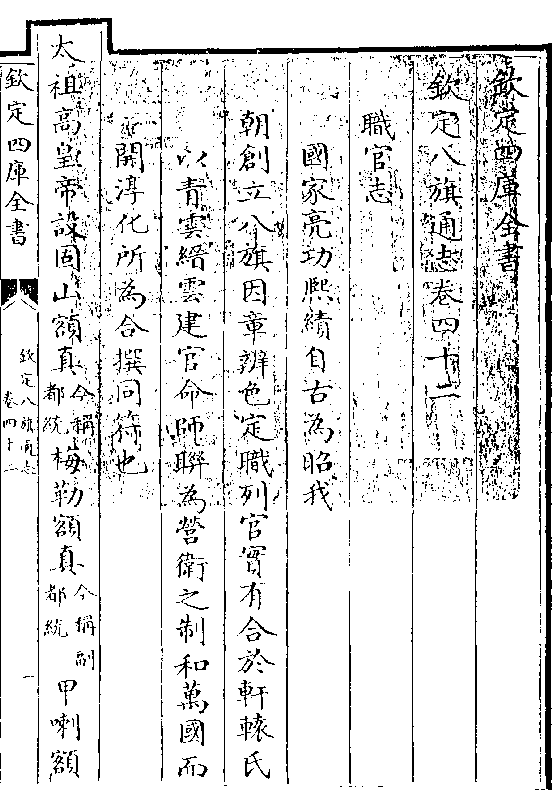 欽定四庫全書
欽定八旗通志卷四十二
職官志
國家亮功熙績自古為昭我
朝創立八旗因章辨色定職列官實有合於軒轅氏
以青雲縉雲建官命師聯為營衛之制和萬國而
開淳化所為合撰同符也
太祖高皇帝設固山額真今稱都統梅勒額真今稱副都統甲喇額
欽定四庫全書
欽定八旗通志
卷四十二
一